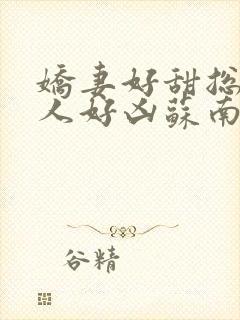 嬌妻好甜総
人好凶蘇南
谷精